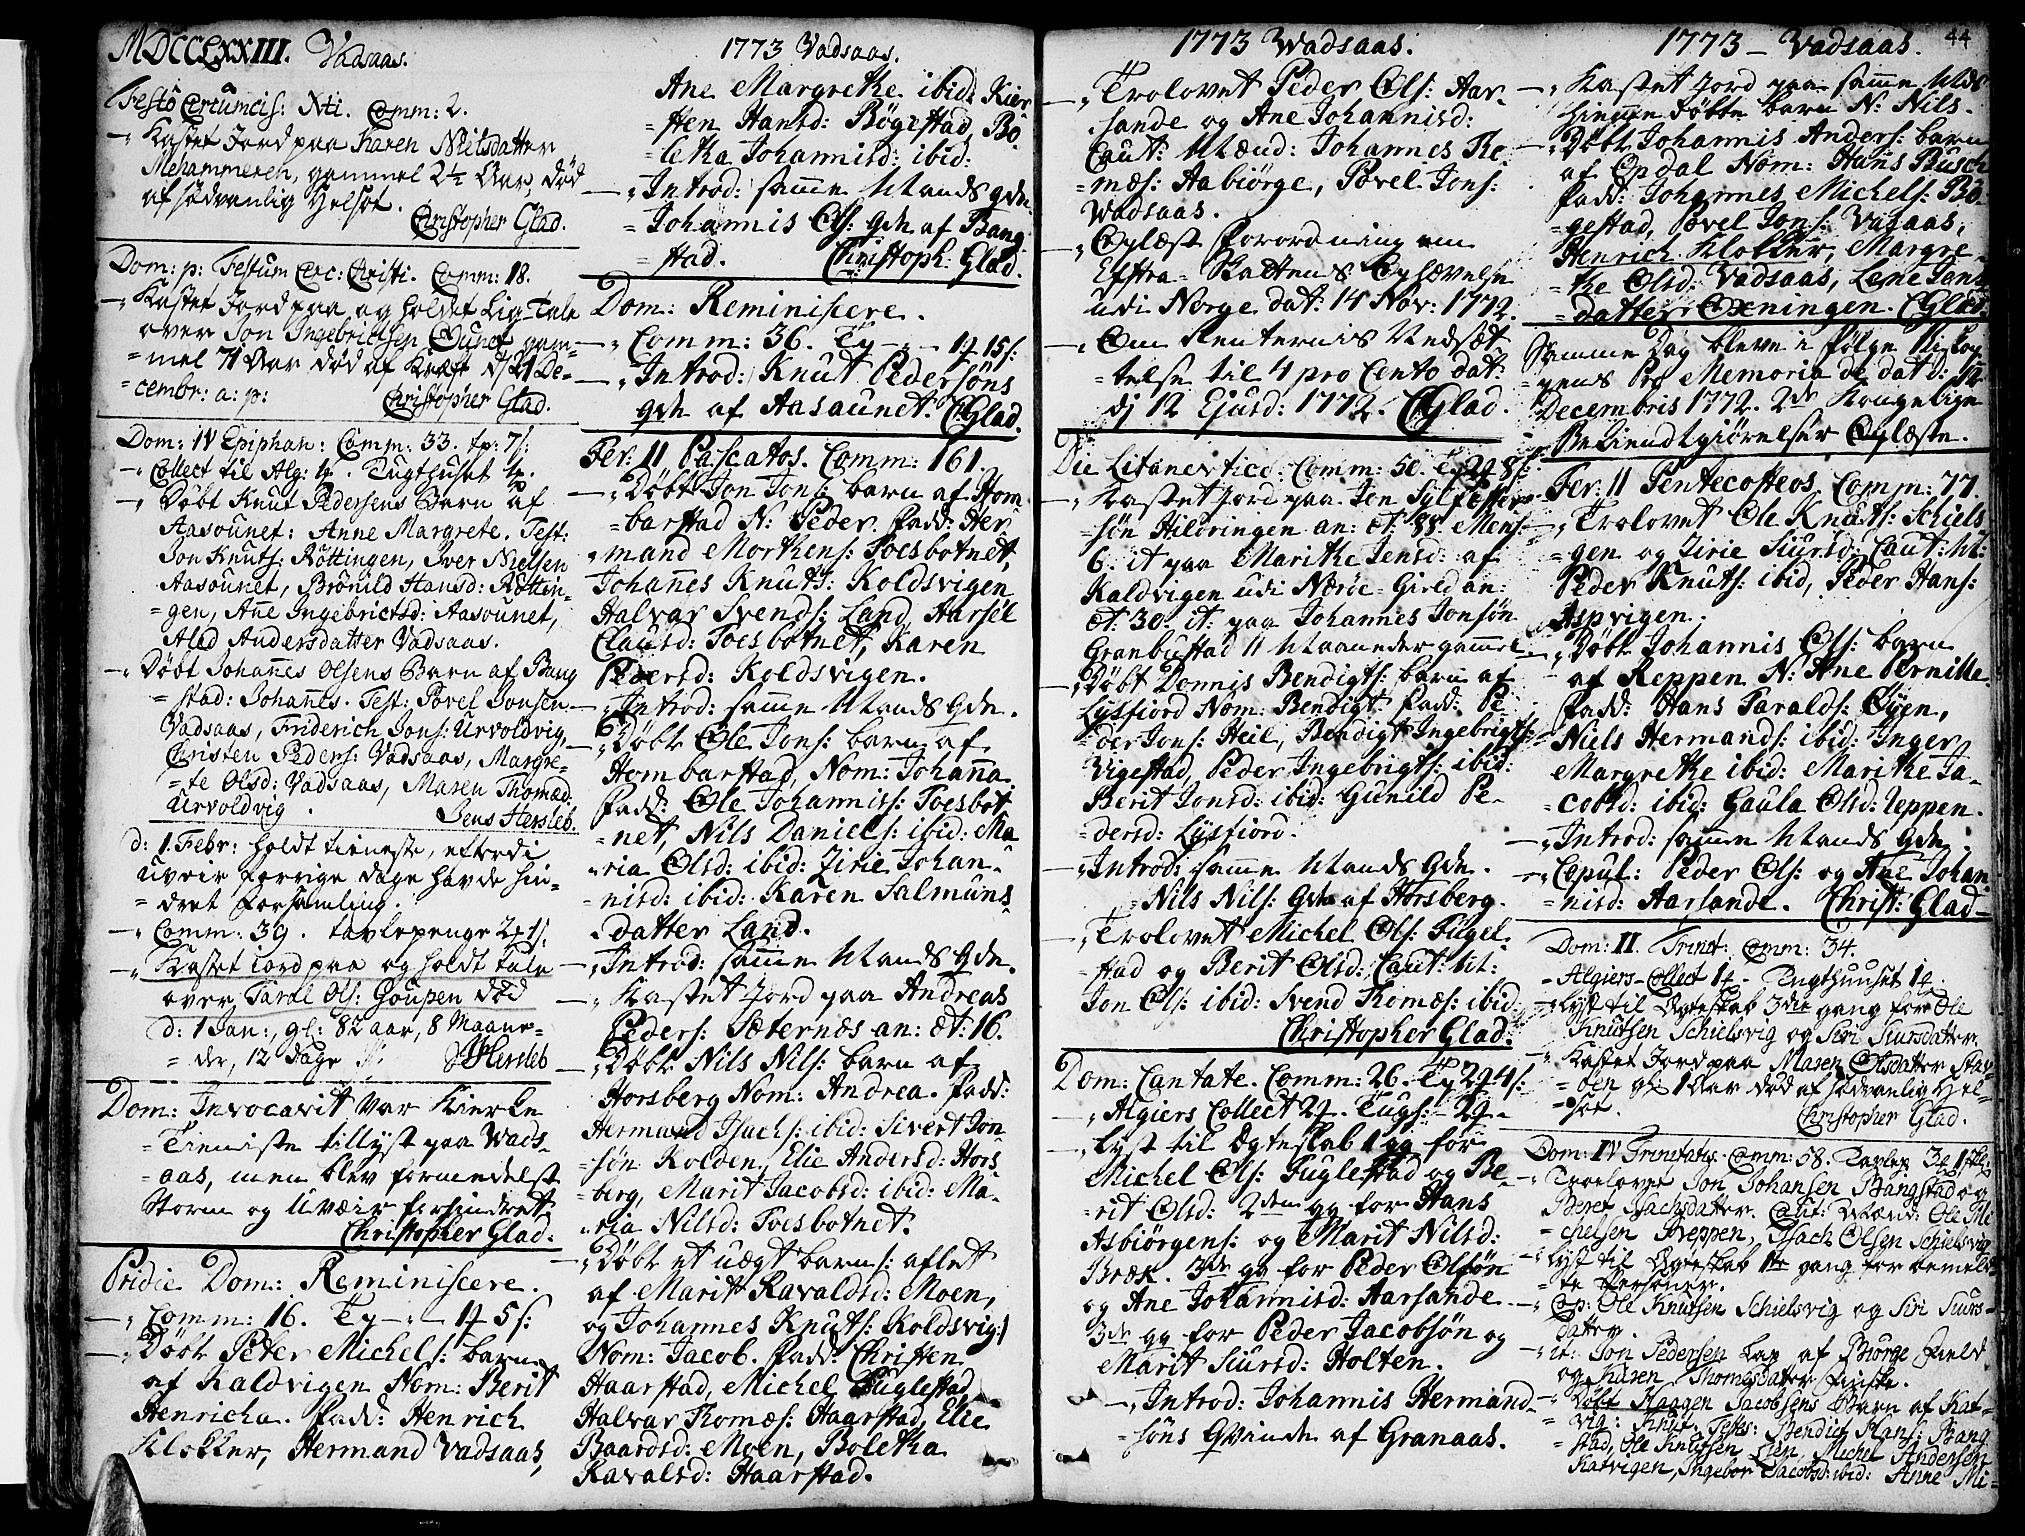 MDCCLXXIII. Vadsaas.
Festo Circumcis: Xti. Comm: 2.
Kastet Jord paa Karen Nielsdatter
Mehammeren, gammel 2½ Aar, død
af sædvanlig Helsot.
Christopher Glad.
Dom: p: Festum Circ: Christi. Comm: 18.
Kastet Jord paa og holdet Lig-Tale
over Jon Ingebrictsen Ounet gam-
=mel 71 Aar død af Kræft d: 21 De-
=cembr: a: p: Christopher Glad.
Dom: IV Epiphan: Comm: 33. tp: 7 s:
Collect til Alg: Tugthuset
Døbt Knut Pedersens Barn af
Aasounet: Anne Margrete. Test:
Jon Knuts: Röttingen, Iver Nielsen
Aasounet, Brönild Hansd: Röttin-
=gen, Ane Ingebrictsd: Aasounet,
Alad Andersdatter Vadsaas.
Døbt Johannes Olsens Barn af Bang
=stad: Johannes. Test: Povel Jonsen
Vadsaas, Friderich Jons: Urvoldvig,
Christen Peders: Vadsaas, Margre-
=te Olsd: Vadsaas, Maren Thomed:
Urvoldvig. Jens Hersleb.
d: 1. Febr: holdt tieneste, efterdi
Uveir forrige dage havde hin-
=dret forsamling.
Comm: 39. tavlepenge 2
Kastet iord paa og holdt tale
over Taral Ols: Goupen død
d: 1 Jan:, gl: 82 aar, 8 Maane-
=der, 12 dage Hersleb
Dom: Invocavit var Kirke
=Tieniste tillyst paa Vads-
=aas, men blev formedelst
Storm og Uveir forhindret.
Christopher Glad.
Pridie Dom: Reminiscere.
Comm: 16. Tp 5 s:
Døbt Peter Michels: barn
af Kaldvigen Nom: Berit
Henricha. Fadd: Henrich
Klokker, Hermand Vadsaas,
1773 Vadsaas.
Ane Margrethe ibid: Kier
=sten Hansd: Bögestad, Bo-
=letha Johannisd: ibid:
Introd: samme Mands Qde.
Johannis Ols: Qde af Bang
=stad. Christoph: Glad.
Dom: Reminiscere.
Comm: 36. Tp 15 s:
Introd: Knut Pedersöns
Qde af Aasaunet. CGlad.
Fer: II Pascatos. Comm: 161.
Døbt Jon Jons: barn af Hom-
=barstad N: Peder. Fadd: Her
mand Morthens: Toesbotnet,
Johanes Knuts: Koldsvigen
Halvar Svends: Land, Aarsél
Clausd: Toesbotnet, Karen
Pedersd: Koldsvigen.
Introd: samme Mands Qde.
Døbt Ole Jons: barn af
Hombarstad, Nom: Johanna.
Fadd: Ole Johanniss: Toesbot
=net, Nils Daniels: ibid: Ma
ria Olsd: ibid: Zirie Johan-
nisd: ibid: Karen Salmuns
datter Land.
Introd: samme Mands Qde.
Kastet Jord paa Andreas
Peders: Sæternæs an: æt: 16.
Døbt Nils Nils: barn af
Horsberg Nom: Andrea. Fadd:
Hermand Isachs: ibid: Sivert Jon
=sön Kolden, Elie Andersd: Hors
=berg, Marit Jacobsd: ibid: Ma-
=ria Nilsd: Toesbotnet.
Døbt et uægt barn: aflet
af Marit Ravaldsd: Moen,
og Johannes Knuts: Koldsvig:)
Nom: Jacob. Fadd: Christen
Haarstad, Michel Fuglestad,
Halvar Thomæs: Haarstad, Elie
Baardsd: Moen, Boletha
Ravalsd: Haarstad.
1773 Wadsaas.
Trolovet Peder Ols: Aar-
sande og Ane Johannisd:
Caut: Mænd: Johannes Tho-
=mæs: Aabiörge, Povel Jons:
Wadsaas.
Oplæst Forordning om
Exstra-Skattens Ophævelse
udi Norge dat: 14 Nov: 1772.
Om Renternis Nedsæt
=telse til 4 pro Cento dat:
dj 12 Ejusd: 1772. CGlad.
Die Litanevticd: Comm: 50. Tp 8 s:
Kastet Jord paa Jon Sylfester-
sön Hildringen an: æt: 88. Mens:
6. it paa Marithe Jensd: af
Kaldvigen udi Nærøe-Gield an:
æt: 30. it: paa Johannes Jonsön
Granbustad 11 Maaneder gammel.
Døbt Donnis Bendigts: barn af
Lysfiord Nom: Bendigt. Fadd: Pe
der Jons: Heil, Bendigt Ingebrigts:
Vigestad, Peder Ingebrigts: ibid:
Berit Jonsd: ibid: Gunild Pe-
dersd: Lysfiord.
Introd: samme Mands Qde.
Nils Nils: Qde af Horsberg.
Trolovet Michel Ols: Fugel-
stad og Berit Olsd: Caut: M:
Jon Ols: ibid: Svend Thomæs: ibid
Christopher Glad.
Dom: Cantate. Comm: 26. Tp 4 s:
Algiers Collect Tugs:
Lyst til Ægteskab 1 gg for
Michel Ols: Fuglestad og Be-
rit Olsd: 2den gg for Hans
Asbiörgens: og Marit Nilsd:
Bræk. 3de gg for Peder Olsön
og Ane Johannisd: Aarsande
3de gg for Peder Jacobsön og
Marit Siursd: Holten.
Introd: Johannis Hermand
=söns Qvinde af Granaas.
1773 - Vadsaas. 44
Kastet Jord paa samme Mds
hiemmedøbte barn N: Nils.
Døbt Johannis Anders: barn
af Opdal Nom: Hans Busch
Fadd: Johannes Michels: Bö-
gestad, Povel Jons: Vadsaas,
Henrich Klokker, Margre
=the Olsd: Vadsaas, Lene Jans
=datter Oxningen. CGlad.
Samme Dag bleve i følge Biskop
=pens Pro Memoria de dato: 12
Decembris 1772. 2de Kongelige
Bekiendtgiörelser Oplæste.
Fer: II Pentecosteos. Comm: 77.
Trolovet Ole Knuts: Schiels
=gen og Zirie Siursd: Caut: M:
Peder Knuts: ibid, Peder Hans:
Aspvigen.
Døbt Johannis Ols: barn
af Reppen N: Ane Pernille.
Fadd: Hans Taralds: Öyen,
Niels Hermands: ibid: Inger
Margrethe ibid: Marithe Ja-
=cobsd: ibid: Gaula Olsd: Reppen.
Introd: samme Mands Qde.
Copul: Peder Ols: og Ane Johan
=nisd: Aarsande. Christ: Glad
Dom: II. Trinit: Comm: 34.
Algiers-Collect Tugthuuset
Lyst til Ægteskab 3die gang for Ole
Knutsen Schielsvig og Siri Siursdatter.
Kastet Jord paa Maren Olsdatter
gl: 1 Aar død af sædvanlig Hel-
=sot. Christopher Glad.
Dom: IV Trinitatis. Comm: 58. Tavlep.
Troelovet Jon Johansen Bangstad og
Beret Isachsdatter. Caut: Mænd: Ole Mi
chelsen Reppen, Isach Olsen Schielsvig
Lyst til Ægteskab 1te gang for bemeld
=te Personer.
Cop: Ole Knutsen Schielsvig og Siri Siurs-
datter.
it: Jon Pedersen Lap af Biørge Field
og Karen Thomasdatter
Døbt Haagen Jacobsens Barn af Kat-
vig: Knut. Test: Bendich Hans: Bang
stad, Ole Knutsen Lien, Michel Andersen
Katvigen, Ingebor Jacobsd: ibid: Anne Mi-